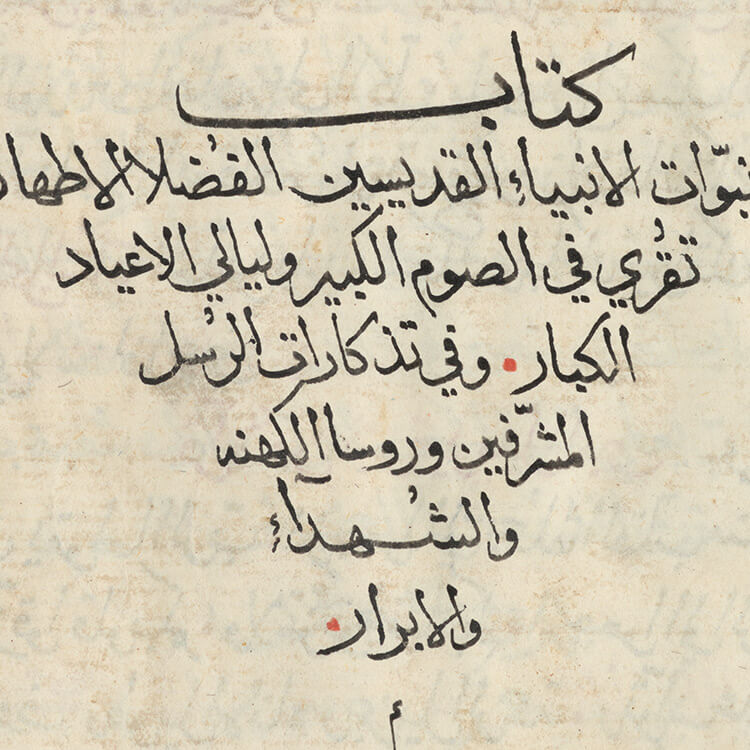 كتاب
نبوّات الانبياءِ القديسين الفُضلا الاطهار
تقُري في الصوم الكبير وليالي الاعياد
الكبار. وفي تذكارات الرسُل
المشرّفين وروسا الكهنه
والشُهدآءِ
والابرار.